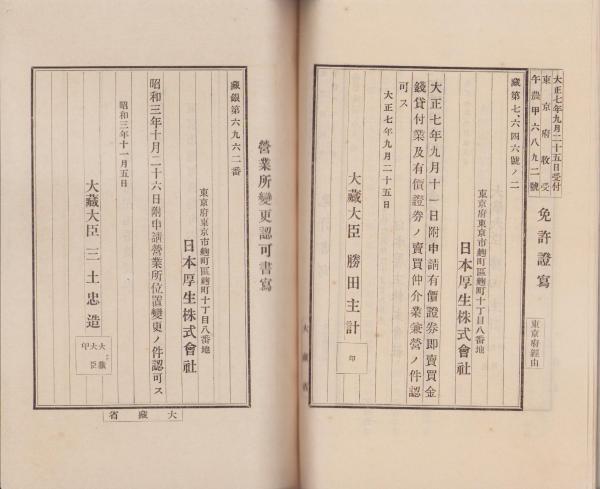 大正七年九月二十五日受付
東京府收受
午農甲六八九二號
免許證寫
東京府經由
藏第七、六四六號ノ二
東京府東京市麴町區麴町十丁目八番地
日本厚生株式會社
大正七年九月十一日附申請有價證券卽賣買金
錢貸付業及有價證券ノ賣買仲介業兼營ノ件認
可ス
大正七年九月二十五日
大藏大臣 勝田主計
印
營業所變更認可書寫
藏銀第六九六二番
東京府東京市麴町區麴町十丁目八番地
日本厚生株式會社
昭和三年十月二十六日附申請營業所位置變更ノ件認可ス
昭和三年十一月五日
大藏大臣 三土忠造
大藏
大臣
印
大藏省